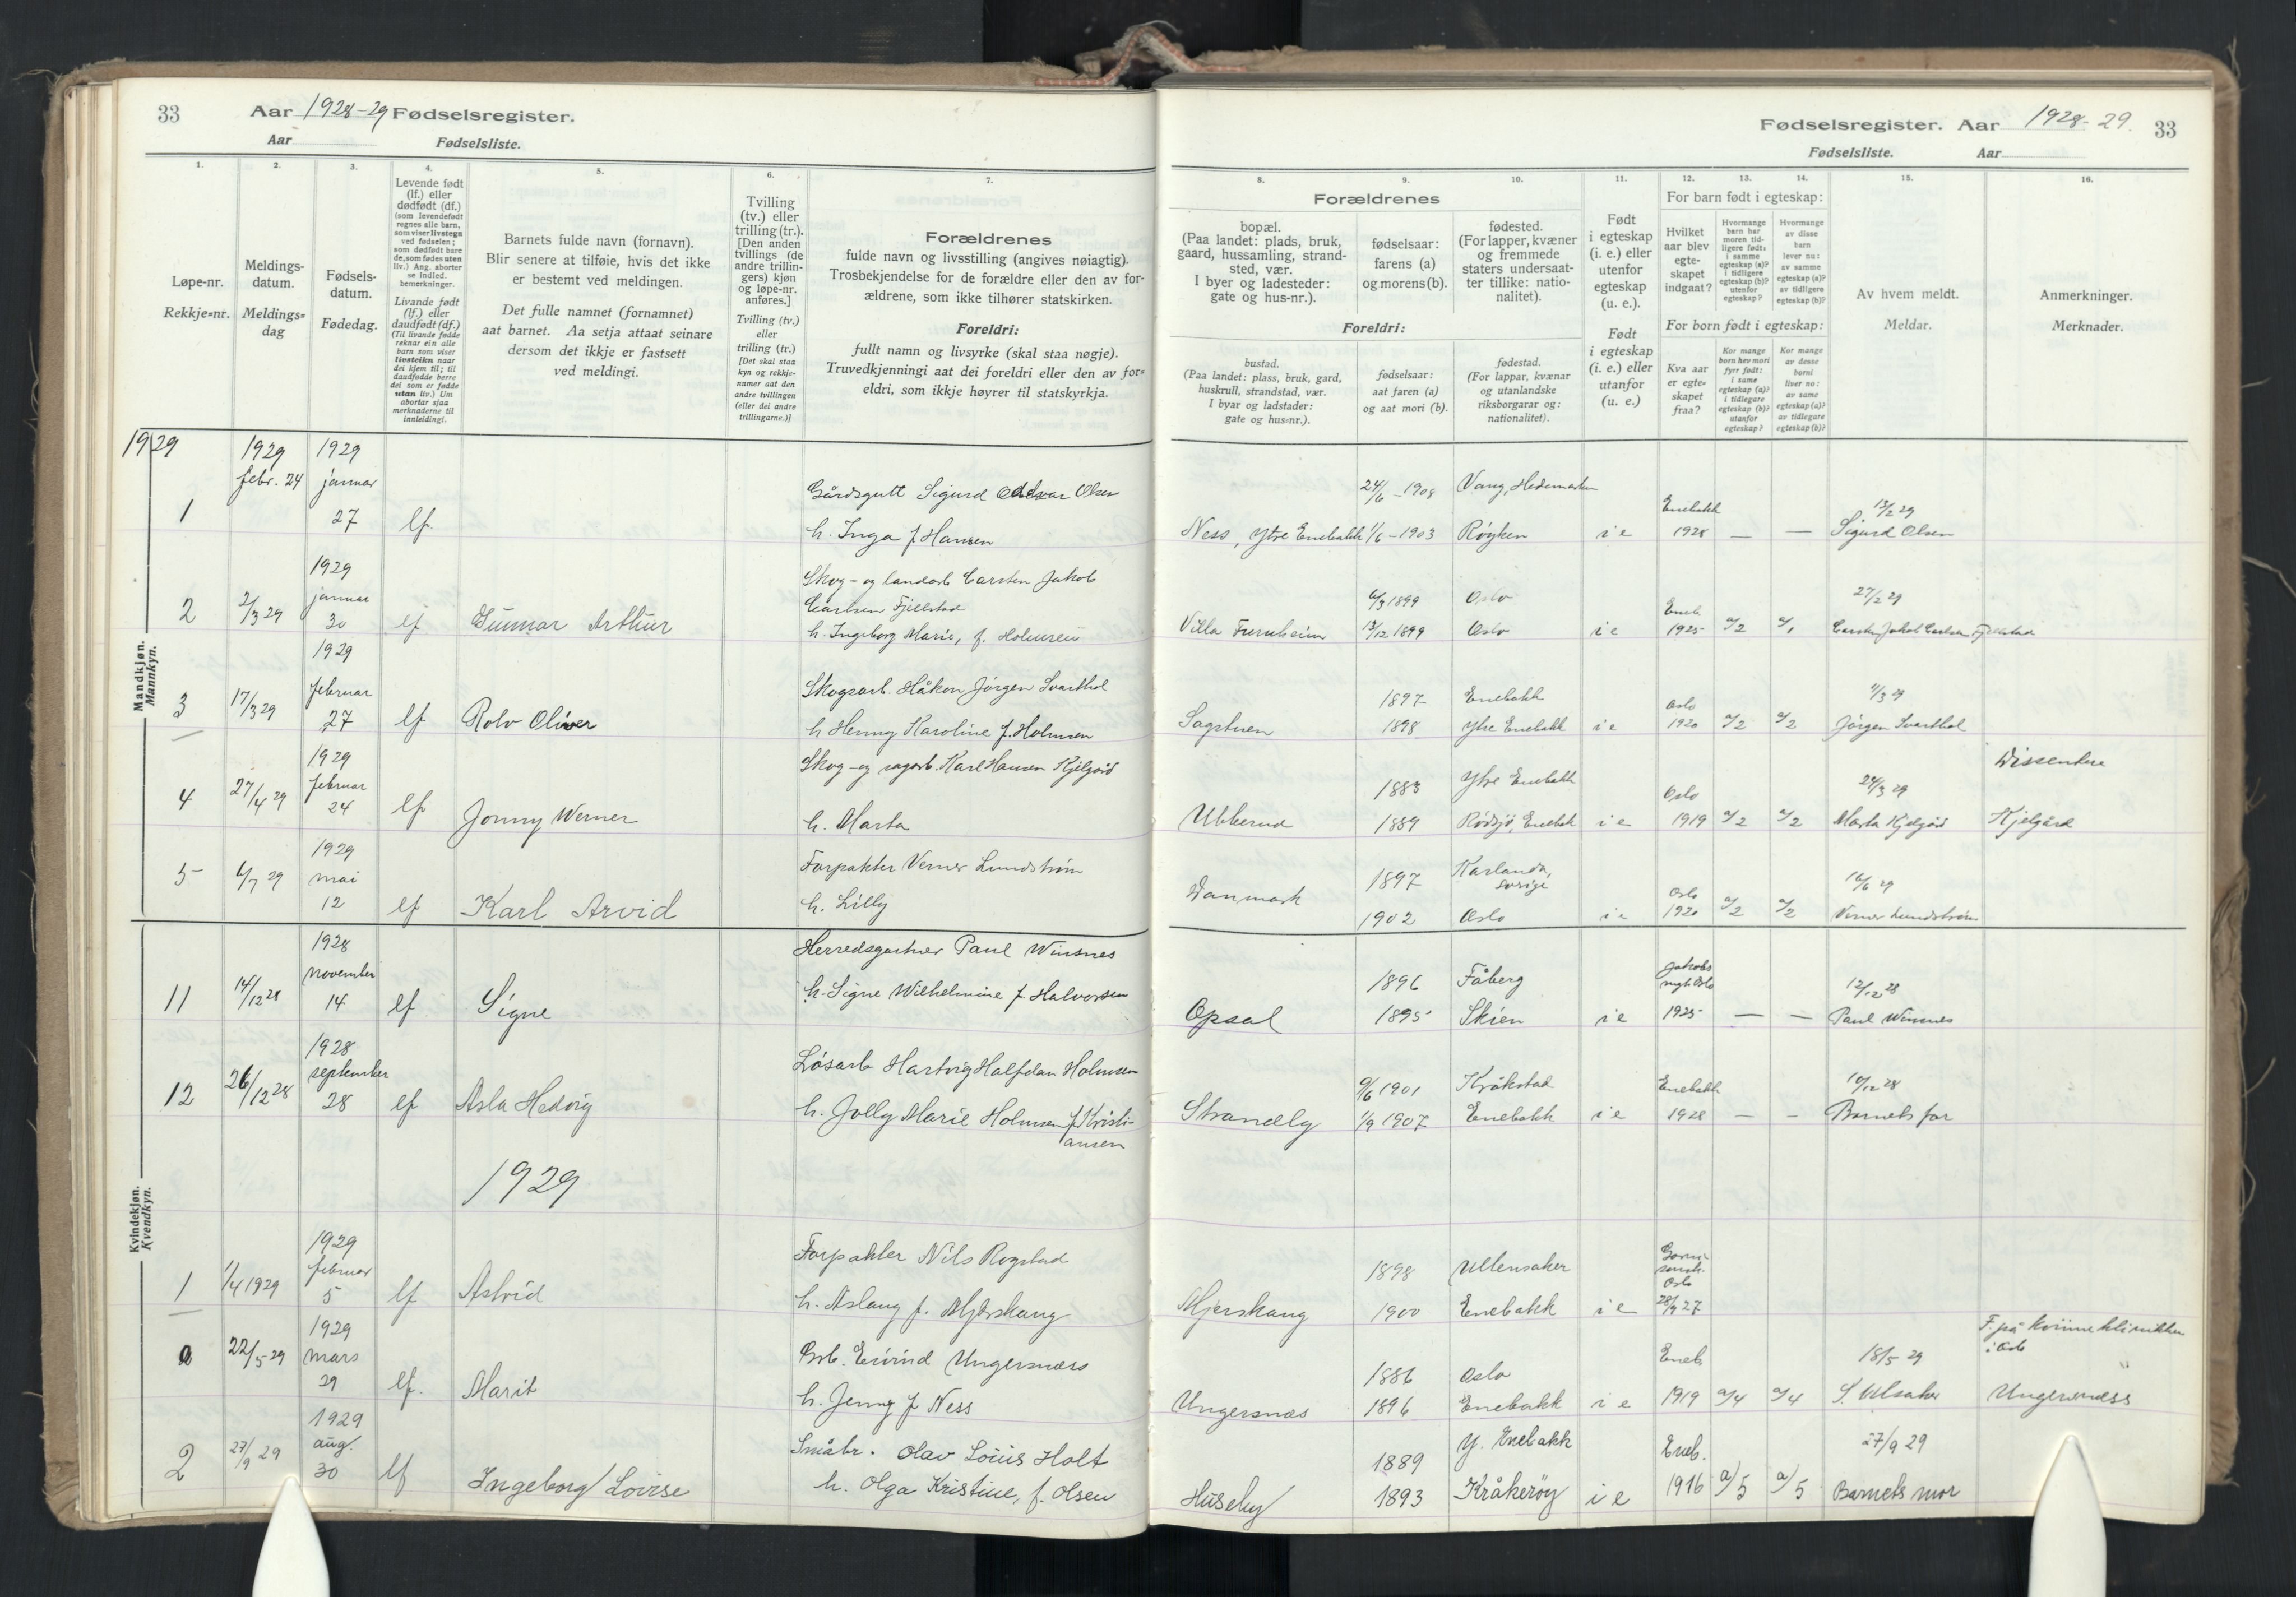 33 Aar 1928-29 Fødselsregister.
Aar Fødselsliste.
1.
Løpe-nr.
Rekkje=nr.
2.
Meldings-
datum.
Meldings=
dag
3.
Fødsels-
datum.
Fødedag.
4.
Levende født
(lf.) eller
dødfødt (df.)
(som levendefødt
regnes alle barn,
som viser livstegn
ved fødselen;
som dødfødt bare
de, som fødes uten
liv.) Ang. aborter
se indled.
bemerkninger.
Livande født
(lf.) eller
daudfødt (df.)
(Til livande fødde
reknar ein alle
barn som viser
livsteikn naar
dei kjem til; til
daudfødde berre
dei som er fødde
utan liv.) Um
abortar sjaa
merknaderne til
innleidingi.
5.
Barnets fulde navn (fornavn).
Blir senere at tilføie, hvis det ikke
er bestemt ved meldingen.
Det fulle namnet (fornamnet)
aat barnet. Aa setja attaat seinare
dersom det ikkje er fastsett
ved meldingi.
6.
Tvilling
(tv.) eller
trilling (tr.).
[Den anden
tvillings (de
andre trillin-
gers) kjøn
og løpe-nr.
anføres.]
Tvilling (tv.)
eller
trilling (tr.)
[Det skal staa
kyn og rekkje-
numer aat den
andre tvillingen
(eller dei andre
trillingarne.)]
7.
Forældrenes
fulde navn og livsstilling (angives nøiagtig).
Trosbekjendelse for de forældre eller den av for-
ældrene, som ikke tilhører statskirken.
Foreldri:
fullt namn og livsyrke (skal staa nøgje).
Truvedkjenningi aat dei foreldri eller den av for=
eldri, som ikkje høyrer til statskyrkja.
Mandkjøn.
Mannkyn.
1929
1 1929 febr. 24 1929 januar 27 lf.
Gårdsgutt Sigurd Olsen
h. Inga f Hansen
2 2/3 29 1929 januar 30 lf Gunnar Arthur
Skog- og landarb Carsten Jakob
Carlsen Fjellstad
h. Ingeborg Marie, f. Holmsen
3 17/3 29 1929 februar 27 lf Rolv Oliver
Skogsarb. Håkon Jørgen Svarthol
h Henny Karoline f. Holmsen
4 27/4 29 1929 februar 24 lf Jonny Werner
Skog- og sagarb. Karl Hansen Kjelgård
h. Marta
5 6/7 29 1929 mai 12 lf Karl Arvid
Forpakter Verner Lundstrøm
h. Lilly
Kvindekjøn.
Kvendkyn.
11 14/12 28 1928 november 14 lf Signe
Herredsgartner Paul Winsnes
h. Signe Wilhelmine f Halvorsen
12 26/12 28 1928 september 28 lf Asla Hedvig
Løsarb Hartvig Halfdan Holmsen
h. Jolly Marie Holmsen f. Kristi-
ansen
1929
1 1/4 1929 1929 februar 5 lf Astrid
Forpakter Nils Rogstad
h. Aslaug f. Mjærskaug
22/5 29 1929 mars 29 lf. Marit
Arb. Eivind Ungersnæss
h. Jenny f Ness
2 27/9 29 1929 aug. 30 lf Ingeborg Lovise
Småbr. Olav Louis Holt
h. Olga Kristine, f. Olsen
Fødselsregister. Aar 1928-29. 33
Fødselsliste. Aar
8.
Forældrenes
bopæl.
(Paa landet: plads, bruk,
gaard, hussamling, strand-
sted, vær.
I byer og ladesteder:
gate og hus-nr.).
Foreldri:
bustad.
(Paa landet: plass, bruk, gard,
huskrull, strandstad, vær.
I byar og ladstader:
gate og hus=nr.).
9.
fødselsaar:
farens (a)
og morens (b).
fødselsaar:
aat faren (a)
og aat mori (b).
10.
fødested.
(For lapper, kvæner
og fremmede
staters undersaat-
ter tillike: natio-
nalitet).
fødestad.
(For lappar, kvænar
og utanlandske
riksborgarar og:
nationalitet).
11.
Født
i egteskap
(i. e.) eller
utenfor
egteskap
(u. e.).
Født
i egteskap
(i. e.) eller
utanfor
(u. e.)
12. 13. 14.
For barn født i egteskap:
Hvilket
aar blev
egte-
skapet
indgaat?
Hvormange
barn har
moren tid-
ligere født:
i samme
egteskap (a)?
i tidligere
egteskap (b)?
utenfor
egteskap?
Hvormange
av disse
barn
lever nu:
av samme
egteskap (a)?
av tidligere
egteskap (b)?
For born født i egteskap:
Kva aar
er egte=
skapet
fraa?
Kor mange
born hev mori
fyrr født:
i same
egteskap (a)?
i tidlegare
egteskap (b)?
utanfor
egteskap?
Kor mange
av desse
borni
liver no:
av same
egteskap (a)?
av tidlegare
egteskap (b)?
15.
Av hvem meldt.
Meldar.
16.
Anmerkninger.
Merknader.
Ness, Ytre Enebakk 24/6-1908 Vang, Hedemarken
1/6-1903 Røyken i e Enebakk 1928 — — 12/2 29 Sigurd Olsen
Villa Furuheim 6/3 1899 Oslo
13/12 1899 Oslo i e Eneb. 1925 a/2 a/1 27/2 29 Carsten Jakob Carlsen Fjellstad
Sagstuen 1897 Enebakk
1898 Ytre Enebakk i e Oslo 1920 a/2 a/2 11/3 29 Jørgen Svarthol
Ubberud 1883 Ytre Enebakk
1889 Rødsjø, Enebak i e Oslo 1919 a/2 a/2 24/3 29 Marta Kjelgård Dissentere
Kjelgård
Danmark 1897 Karlanda, Sverige
1902 Oslo i e Oslo 1920 a/2 a/2 16/6 29 Verner Lundstrøm
Opsal 1896 Fåberg
1895 Skien i e Jakobs Oslo 1925 — — 12/12 28 Paul Winsnes
Strandly 9/6 1901 Kråkstad
1/9 1907 Enebakk i e Enebakk 1928 — — 10/12 28 Barnets far
Mjerskaug 1898 Ullensaker
1900 Enebakk i e Oslo 27
Ungersnæs 1886 Oslo
1896 Enebakk i e Eneb. 1919 a/4 a/4 18/5 29 S. Ulsaker F. på kvinneklinikken
i Oslo
Ungersnæss
Huseby 1889 Y. Enebakk
1893 Kråkerøy i e Eneb. 1916 a/5 a/5 27/9 29 Barnets mor